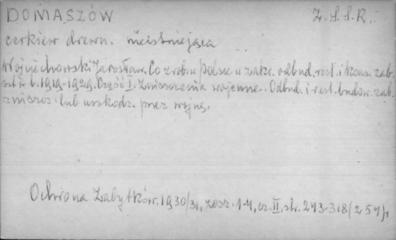 DOMASZÓW Z.S.S.R.
cerkiew drewn. nieistniejąca
Wojciechowski Jarosław. Co zrob. w Polsce w zakr. odbud. rest. i kons. zab.
szt. w l. 1919-1929. Część I. Zniszczenia wojenne. Odbud. i rest. budow. zab.
zniszcz. lub uszkodz. przez wojnę.
Ochrona Zabytków, 1930/31, zesz. 1-4, cz. II, str. 243-318 (257),